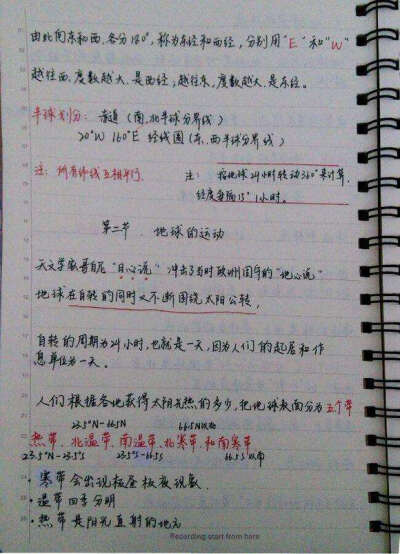 由此向东和西,各分180°,称为东经和西经,分别用"E"和"W"
越往西,度数越大,是西经;越往东,度数越大,是东经。
半球划分: 赤道(南,北半球分界线)
20°W 160°E 经线圈(东、西半球分界线)
注: 所有纬线互相平行. 注: 按地球24小时转动360°来计算,
经度每隔15°1小时。
第二节、地球的运动
天文学家哥白尼"日心说"冲出了当时欧洲固守的"地心说"
地球在自转的同时又不断围绕太阳公转,
自转的周期为24小时,也就是一天,因为人们的起居和作
息单位为一天。
人们根据各地获得太阳光热的多少,把地球表面分为五个带
23.5°N-66.5N 66.5N以北
热带、北温带、南温带、北寒带和南寒带
23.5°N-23.5°S 23.5°S-66.5S 66.5S以南
·寒带会出现极昼极夜现象.
·温带四季分明
·热带是阳光直射的地方
Recording start from here